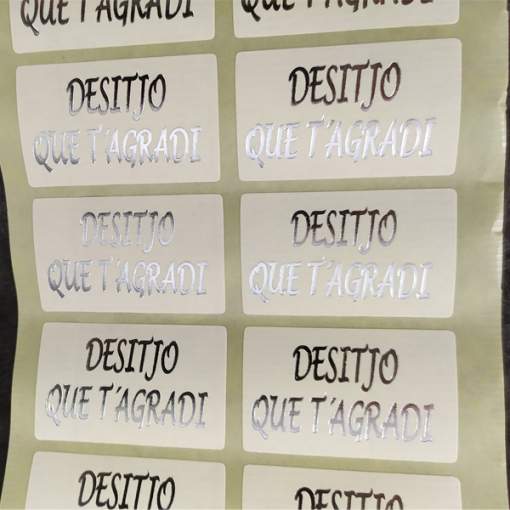 QUE T'AGRADI
QUE T'AGRADI
DESITJO
QUE T'AGRADI
DESITJO
QUE T'AGRADI
DESITJO
QUE T'AGRADI
DESITJO
QUE T'AGRADI
DESITJO
QUE T'AGRADI
DESITJO
QUE T'AGRADI
DESITJO
DESITJO